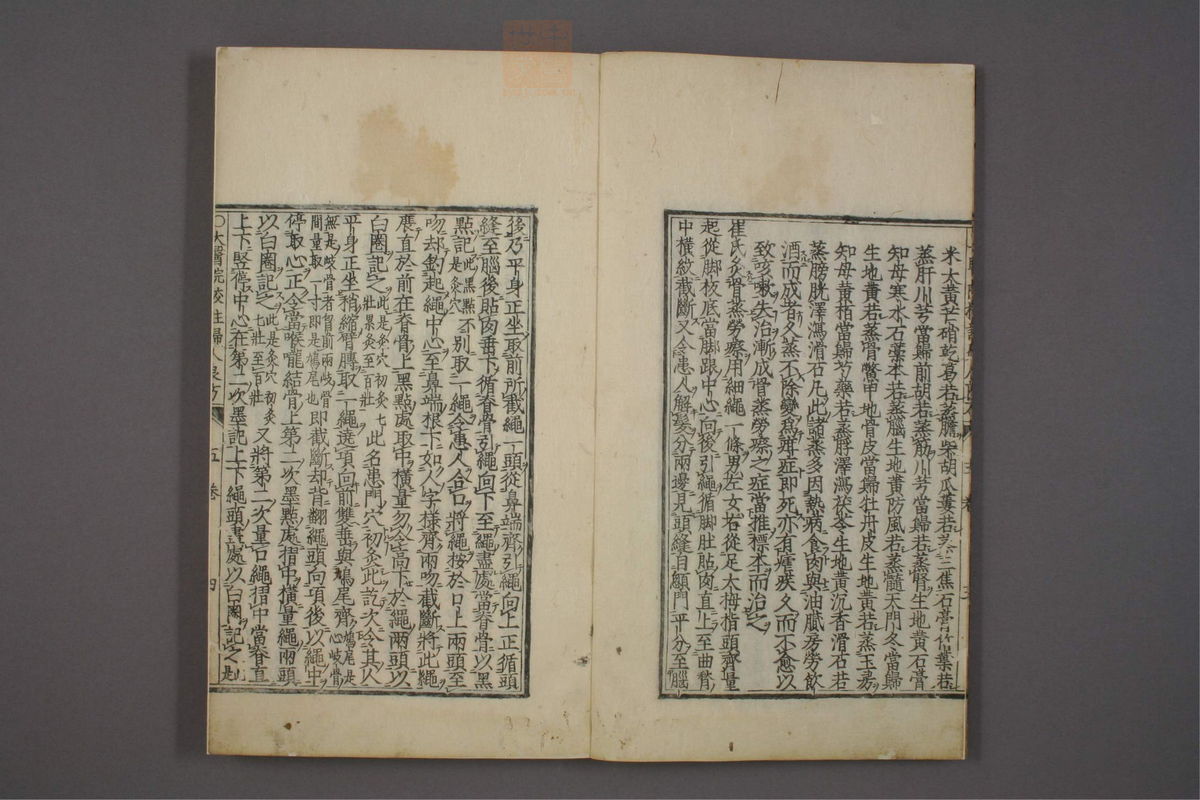 米大黄芒硝乾葛若蒸膽柴胡瓜蔞若蒸三焦石膏竹葉若
蒸肝川芎當歸前胡若蒸筋川芎當歸若蒸腎生地黄石膏
知母寒水石藁本若蒸腦生地黄防風若蒸髓天門冬當歸
生地黄若蒸骨鱉甲地骨皮當歸牡丹皮生地黄若蒸玉房
知母黄栢當歸芍藥若蒸脬澤瀉茯苓生地黄沉香滑石若
蒸膀胱澤瀉滑石凡此諸蒸多因熱病食肉與油膩房勞飲
酒而成者久蒸不除變爲疳症即死亦有瘧疾久而不愈以
致咳嗽失治漸成骨蒸勞瘵之症當推標本而治之
崔氏灸骨蒸勞瘵用細繩一條男左女右從足太拇指頭齊量
起從脚板底當脚跟中心向後引繩循脚肚貼肉直上至曲䐐
中横紋截斷又令患人解髮分兩邊見頭縫自顖門平分至腦
後乃平身正坐取前所截繩一頭從鼻端齊引繩向上正循頭
縫至腦後貼肉垂下循脊骨引繩向下至繩盡處當脊骨以黑
點記此黑點不是灸穴別取一繩令患人合口將繩按於口上兩頭至
吻却鈎起繩中心至鼻端根下如人字樣齊兩吻截斷將此繩
展直於前在脊骨上黑點處取中横量勿令高下於繩兩頭以
白圈記之此是灸穴初灸七壯累灸至百壯此名患門穴初灸此訖次令其人
平身正坐稍縮臂膊取一繩遶項向前雙垂與鳩尾齊鳩尾是心岐骨
無是岐骨者胷前兩岐骨間量取一寸即是鳩尾也即截斷却背翻繩頭向項後以繩中
停取心正令當喉嚨結骨上第二次墨點處摺中横量繩兩頭
以白圈記之此是灸穴初灸七壯至百壯又將第二次量口繩摺中當脊直
上下竪舊中心在第二次墨記上下繩頭盡處以白圈記之是
○太醫院校註婦人良方 五卷 四